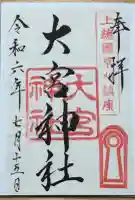 奉拝
上総國
大宮神社
大宮
神社
令和六年七月十五日